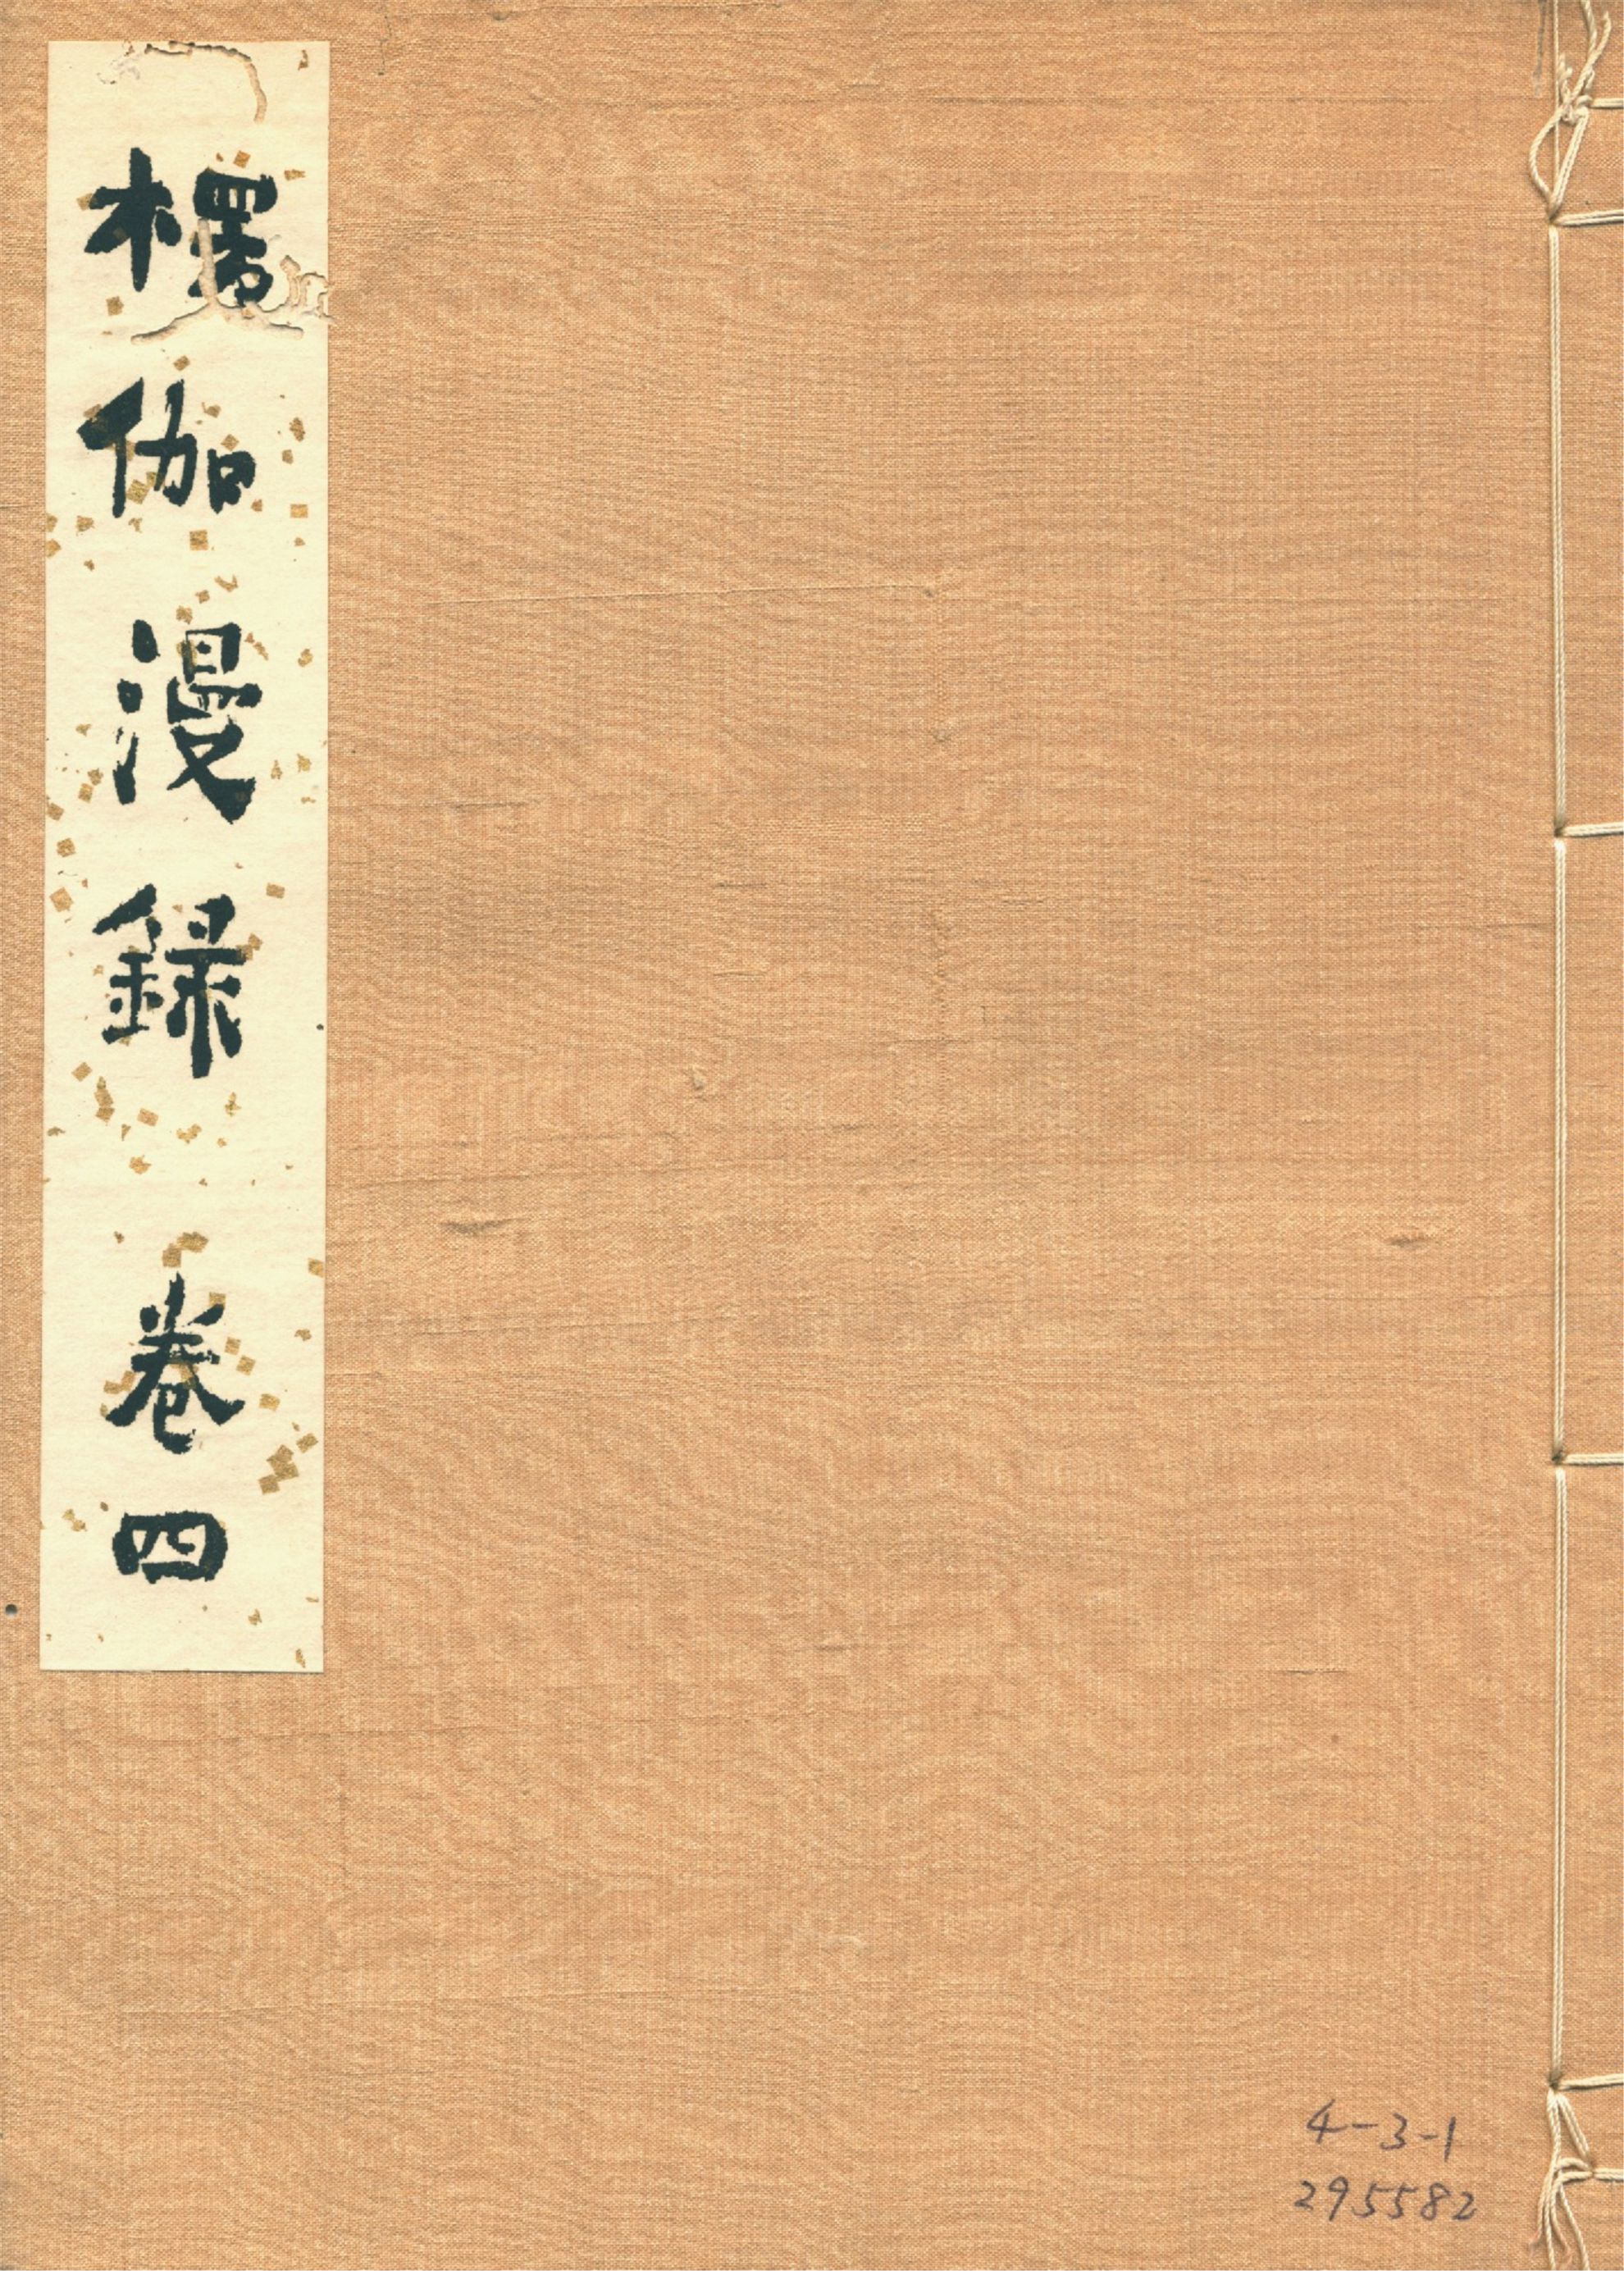 楞伽漫録 巻四
4-3-1
295582